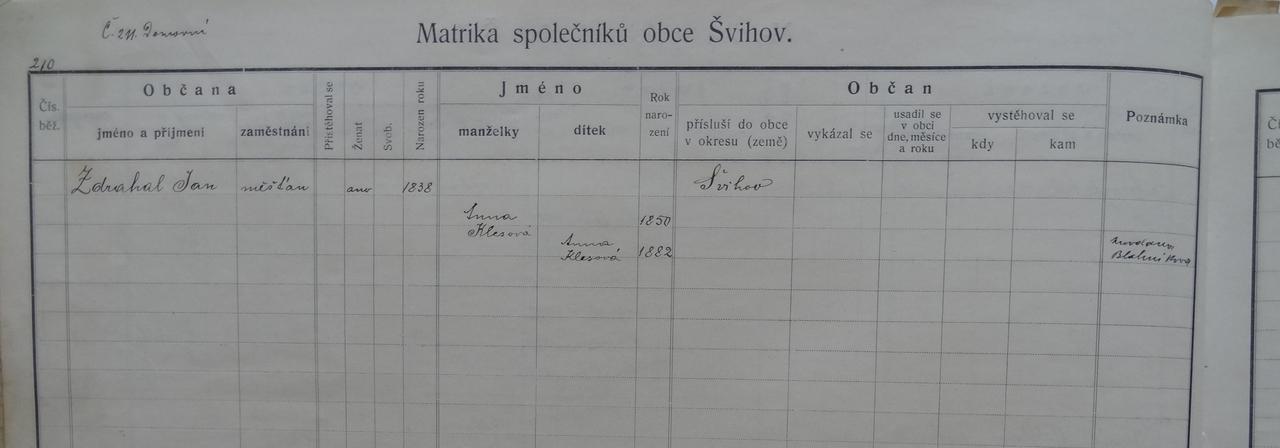 Č. 211. Domovní
Matrika společníků obce Švihov.
210
Čís. běž.
Občana
jméno a přijmení
zaměstnání
Přistěhoval se
Ženat
Svob.
Narozen roku
Jméno
manželky
dítek
Rok naro-
zení
Občan
přísluší do obce
v okresu (země)
vykázal se
usadil se
v obci
dne, měsíce
a roku
vystěhoval se
kdy
kam
Poznámka
Zdrahal Jan měšťan ano 1838 Švihov
Anna
Klesová
1850
Anna
Klesová
1882
Blahníková